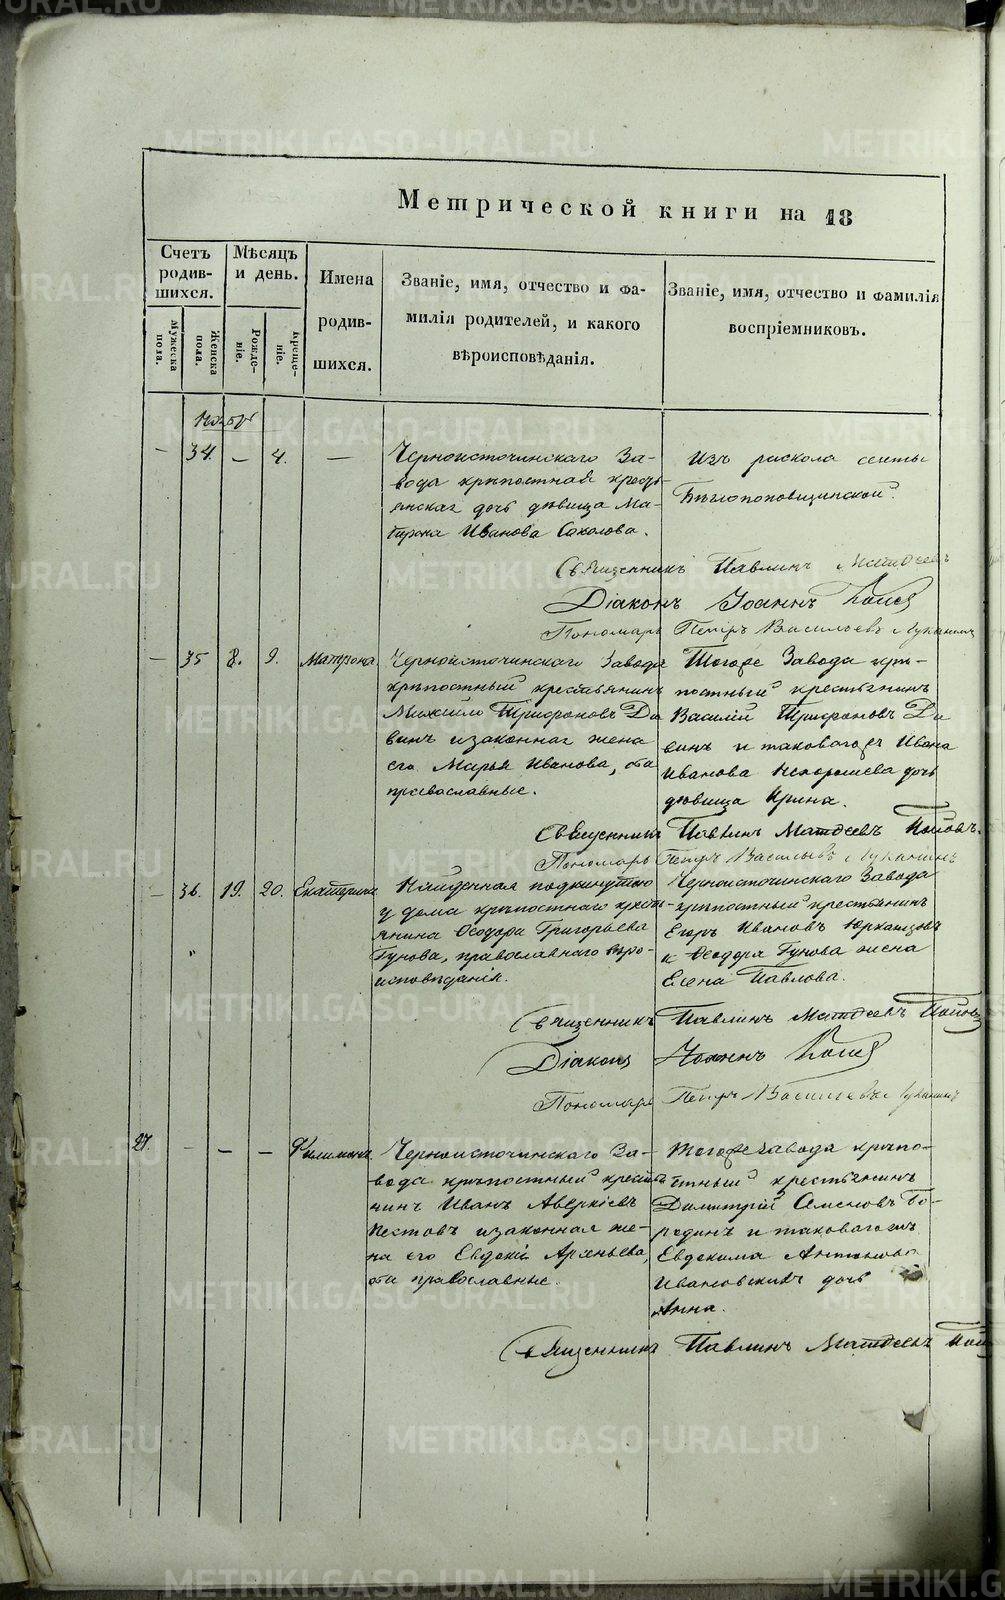 METRIKI.GASO-URAL.RU
Метрической книги на 18
Счетъ родив-шихся.
Мужеска пола.
Женска пола.
Мѣсяцъ и день.
Рожде-ніе.
Креще-ніе.
Имена родив-шихся.
Званіе, имя, отчество и фа-
милія родителей, и какого
вѣроисповѣданія.
Званіе, имя, отчество и фамилія
воспріемниковъ.
— 34. — 4. —
Черноисточинскаго За-
вода крѣпостная кресть-
янская дочь дѣвица Ма-
трона Иванова Соколова.
Изъ раскола секты
Бѣглопоповщинской.
Священникъ Павлинъ Матѳеевъ
Діаконъ Іоаннъ
Пономарь Петръ Васильевъ Луканинъ
— 35 8. 9. Матрона
Черноисточинскаго Завода
крѣпостный крестьянинъ
Михайло Трифоновъ Да
винъ и законная жена
его Марья Иванова, оба
православные.
Тогоже Завода крѣ-
постный крестьянинъ
Василій Трифоновъ Да
винъ и таковагожъ Ивана
Иванова дочь
дѣвица Ирина.
Священникъ Павлинъ Матѳеевъ Поповъ.
Пономарь Петръ Васильевъ Луканинъ
— 36. 19. 20. Екатерина
Найденная подкинутою
у дома крѣпостнаго крестъ-
янина Ѳеодора Григорьева
Гунова, православнаго вѣро-
исповѣданія.
Черноисточинскаго Завода
крѣпостный крестьянинъ
Егоръ Ивановъ
и Ѳеодора Гунова жена
Елена Павлова.
Священникъ Павлинъ Матѳеевъ Поповъ
Діаконъ Іоаннъ
Пономарь Петръ Васильевъ Луканинъ
27. — — — Филимонъ.
Черноисточинскаго За-
вода крѣпостный крестья
нинъ Иванъ Аверкіевъ
Пестовъ и законная же-
на его Евдокія Арсеньева,
оба православные.
Тогоже Завода крѣпо-
стный крестьянинъ
Димитрій Семеновъ Бо-
родинъ и таковагожъ
Евдокима Антонова
Ивановскихъ дочь
Анна.
Священникъ Павлинъ Матѳеевъ Поп